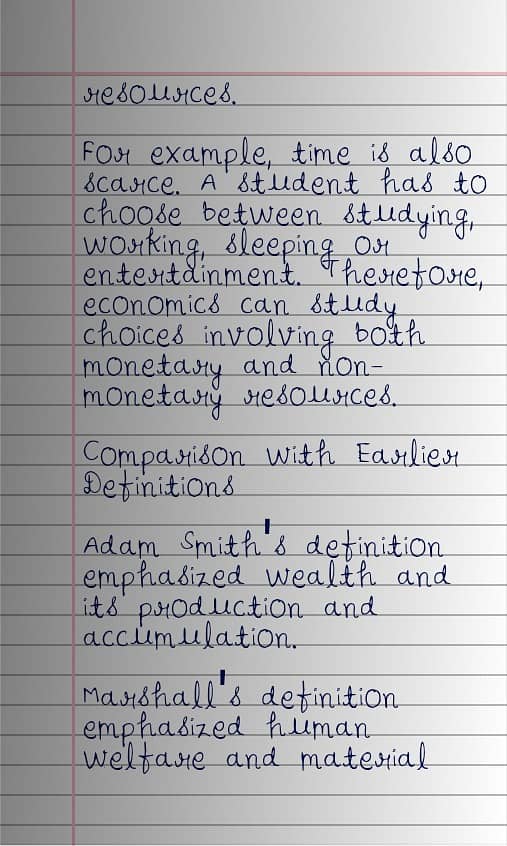 resources.
For example, time is also
scarce. A student has to
choose between studying,
working, sleeping or
entertainment. Therefore,
economics can study
choices involving both
monetary and non-
monetary resources.
Comparison with Earlier
Definitions
Adam Smith's definition
emphasized wealth and
its production and
accumulation.
Marshall's definition
emphasized human
welfare and material